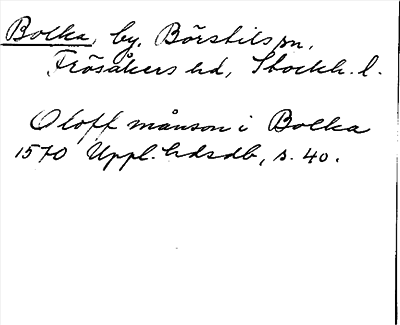 Bolka, by, Börstils sn,
Frösåkers hd, Stockh. l.
Oloff månson i Bolka
1570 Uppl. hdsdb, s. 40.